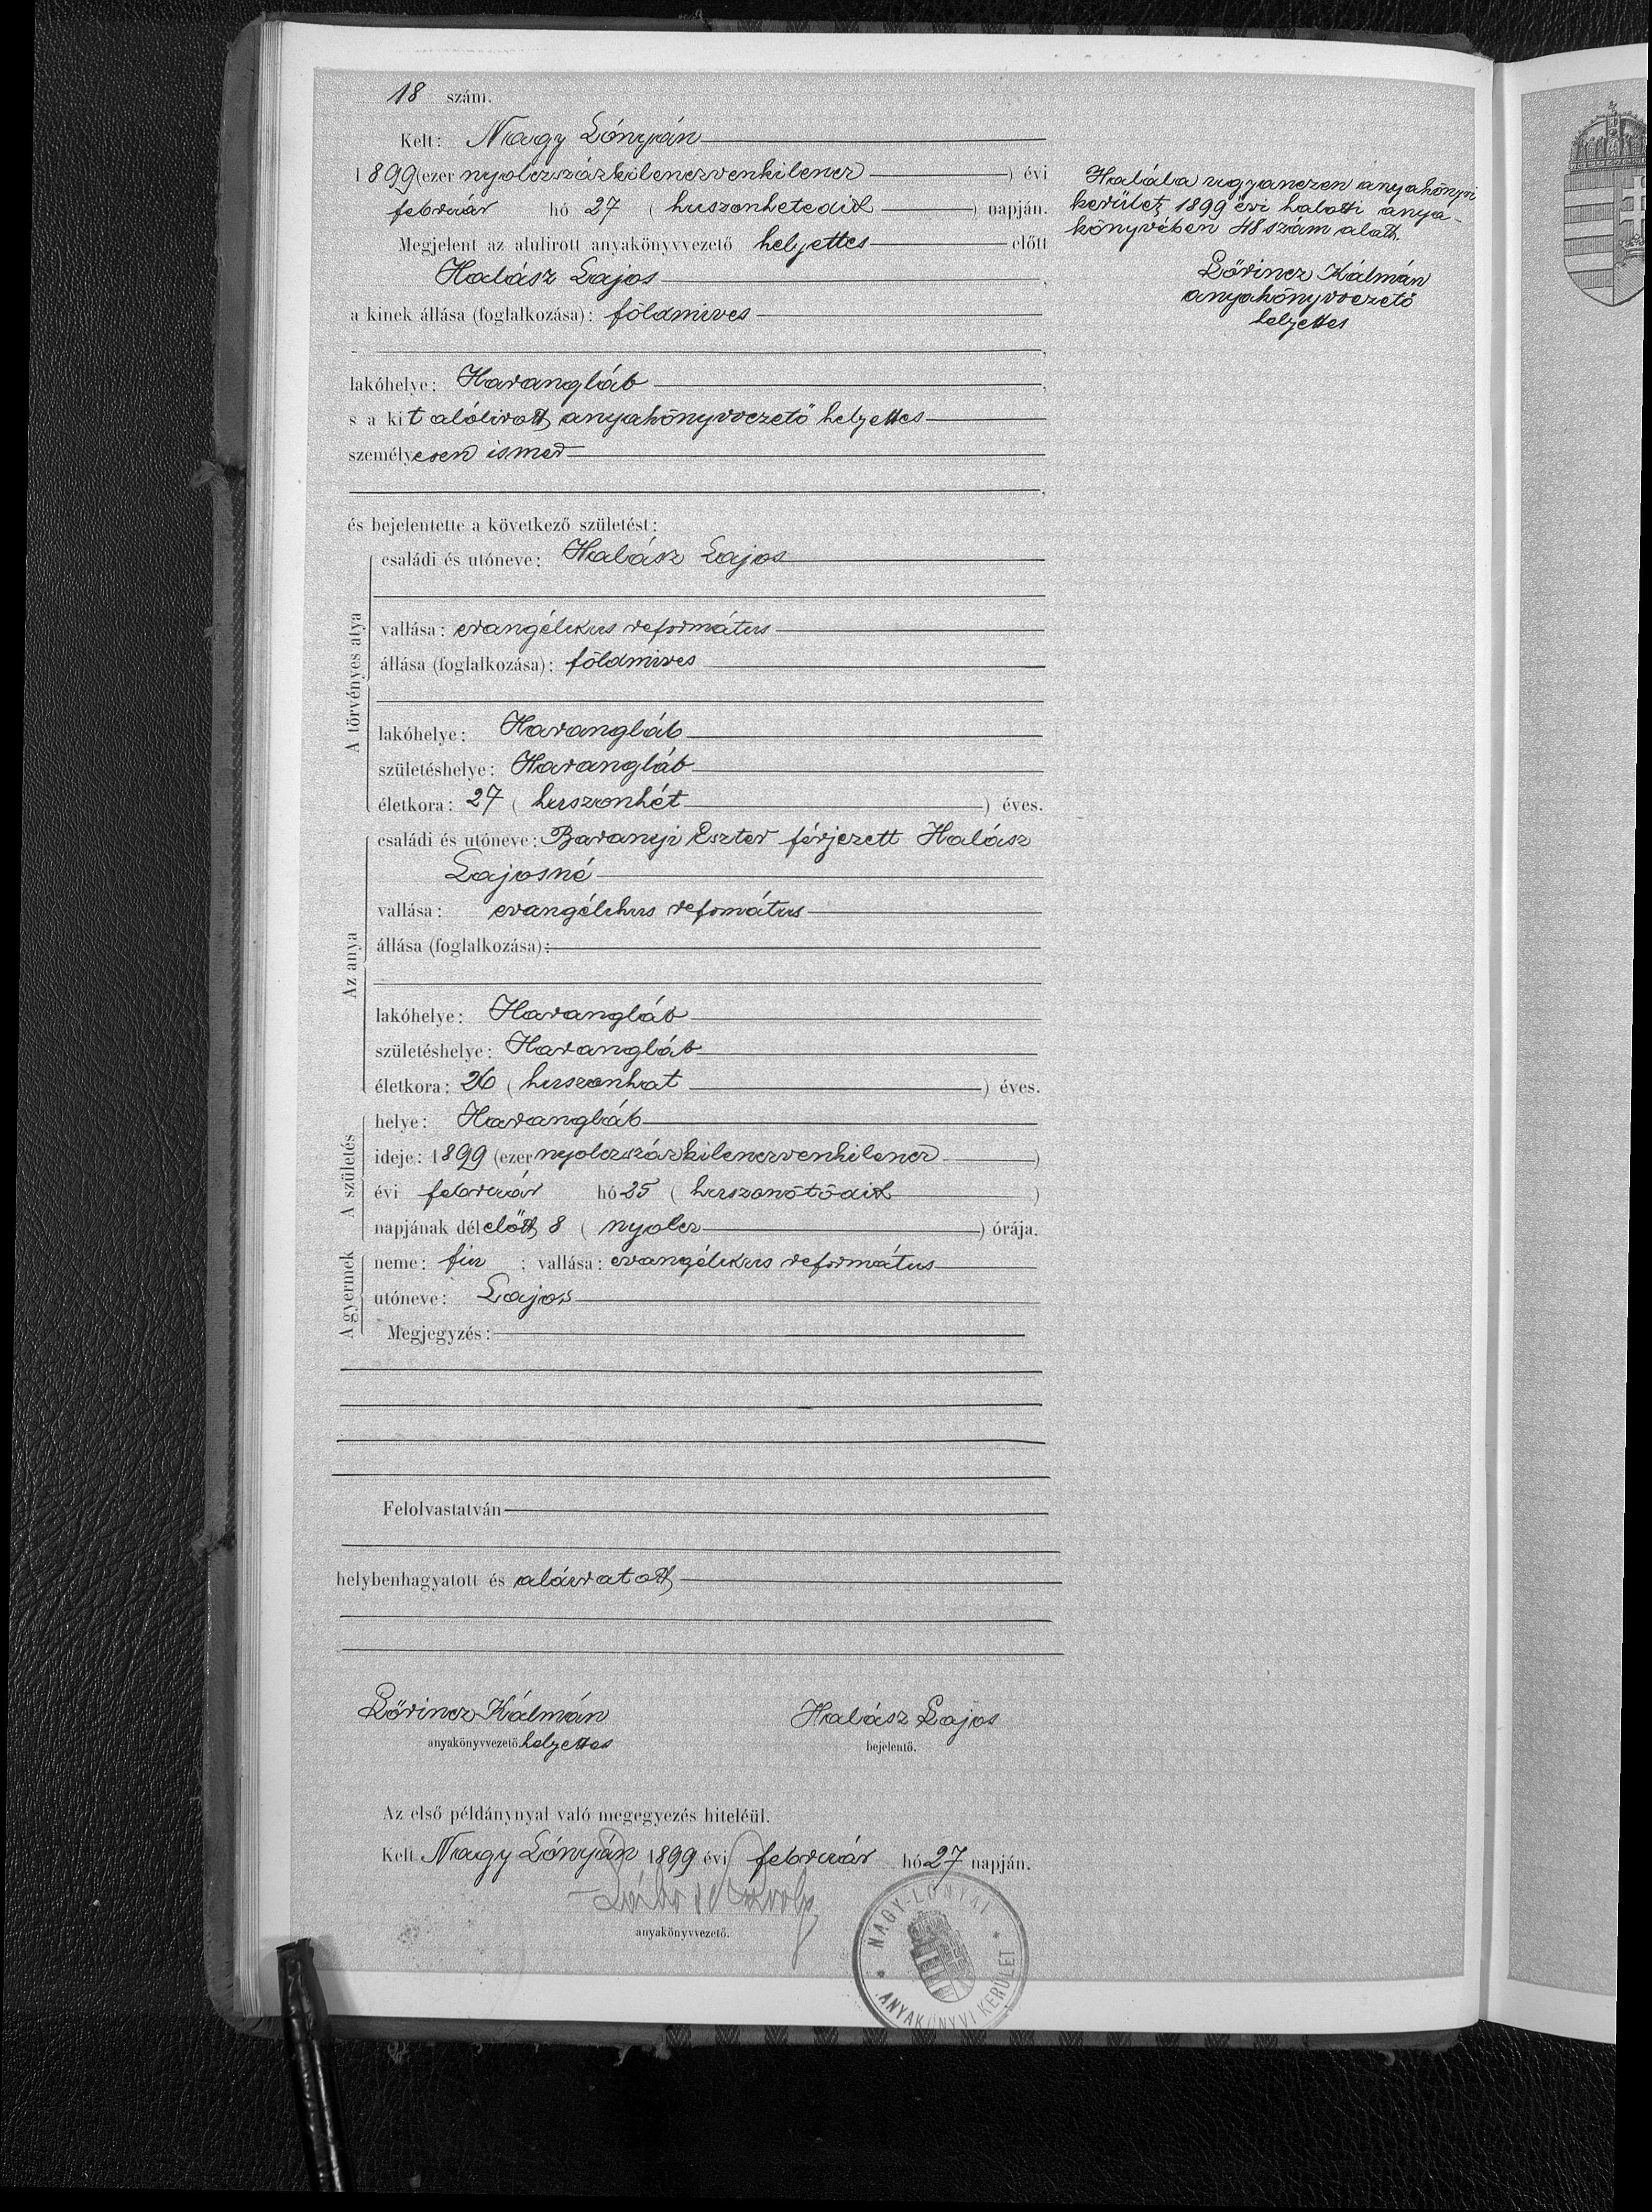 18 szám.
Kelt: Nagy Lónyán
1899 (ezer nyolczszázkilenczvenkilencz ) évi
február hó 27 ( huszonhetedik ) napján.
Megjelent az alulirott anyakönyvvezető helyettes előtt
Halász Lajos ,
a kinek állása (foglalkozása): földmives
,
lakóhelye: Harangláb ,
s a kit alólirott anyakönyvvezető helyettes
személyesen ismer
,
és bejelentette a következő születést:
A törvényes atya
családi és utóneve: Halász Lajos
vallása: evangélikus református
állása (foglalkozása): földmives
lakóhelye: Harangláb
születéshelye: Harangláb
életkora: 27 ( huszonhét ) éves.
Az anya
családi és utóneve: Baranyi Eszter férjezett Halász
Lajosné
vallása: evangélikus refomátus
állása (foglalkozása):
lakóhelye: Harangláb
születéshelye: Harangláb
életkora: 26 ( huszonhat ) éves.
A születés
helye: Harangláb
ideje: 1899 (ezer nyolczszázkilenczvenkilencz )
évi február hó 25 ( huszonötödik )
napjának délelőtt 8 ( nyolcz ) órája.
A gyermek
neme: fiu ; vallása: evangélikus református
utóneve: Lajos
Megjegyzés:
Felolvastatván
helybenhagyatott és aláiratott
Lőrincz Kálmán Halász Lajos
anyakönyvvezető helyettes bejelentő.
Az első példánynyal való megegyezés hiteléül.
Kelt Nagy Lónyán 1899 évi február hó 27 napján.
anyakönyvvezető.
NAGY-LÓNYAI
ANYAKÖNYVI KERÜLET
Halála ugyanezen anyakönyvi
kerület, 1899 évi halotti anya-
könyvében 48 szám alatt.
Lőrincz Kálmán
anyakönyvvezető
helyettes